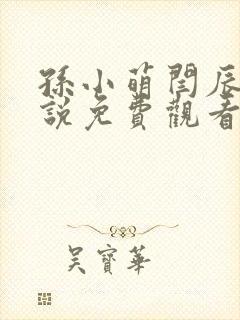 孫小萌閆辰
說免費觀看
吳寶華